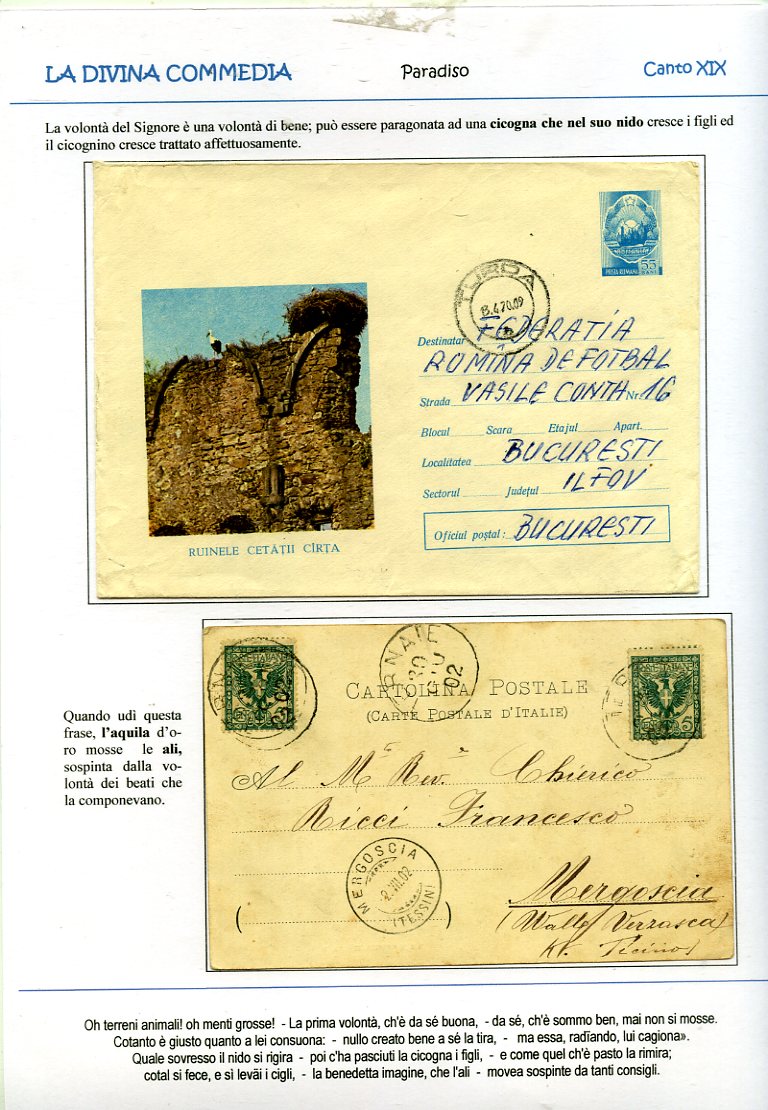 LA DIVINA COMMEDIA Paradiso Canto XIX
La volontà del Signore è una volontà di bene; può essere paragonata ad una cicogna che nel suo nido cresce i figli ed
il cicognino cresce trattato affettuosamente.
POSTA ROMANA 55 BANI
TURDA
13.4.70.09
Destinatar FEDERATIA
ROMINA DE FOTBAL
Strada VASILE CONTA Nr. 16
Blocul Scara Etajul Apart.
Localitatea BUCURESTI
Sectorul Județul ILFOV
Oficiul poștal: BUCURESTI
RUINELE CETĂȚII CÎRȚA
RNATE
30
02
CARTOLINA POSTALE
(CARTE POSTALE D'ITALIE)
5
Al M° Rev.e Chierico
Ricci Francesco
MERGOSCIA
-2.VII.02
(TESSIN)
Mergoscia
(Valle Verzasca
Kt. Ticino)
Quando udì questa
frase, l'aquila d'o-
ro mosse le ali,
sospinta dalla vo-
lontà dei beati che
la componevano.
Oh terreni animali! oh menti grosse! - La prima volontà, ch'è da sé buona, - da sé, ch'è sommo ben, mai non si mosse.
Cotanto è giusto quanto a lei consuona: - nullo creato bene a sé la tira, - ma essa, radïando, lui cagiona».
Quale sovresso il nido si rigira - poi c'ha pasciuti la cicogna i figli, - e come quel ch'è pasto la rimira;
cotal si fece, e sì leväi i cigli, - la benedetta imagine, che l'ali - movea sospinte da tanti consigli.